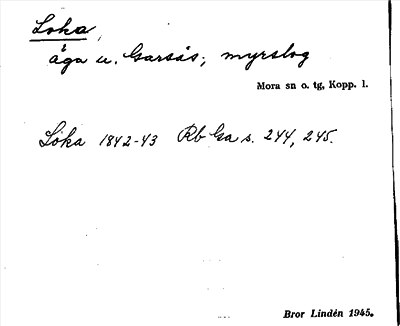 Loka,
äga u. Garsås; myrslog
Mora sn o. tg, Kopp. l.
Löka 1842-43 Rb Ga s. 244, 245.
Bror Lindén 1945.